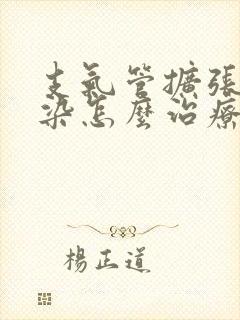 支氣管擴張
染怎麼治療
楊正道